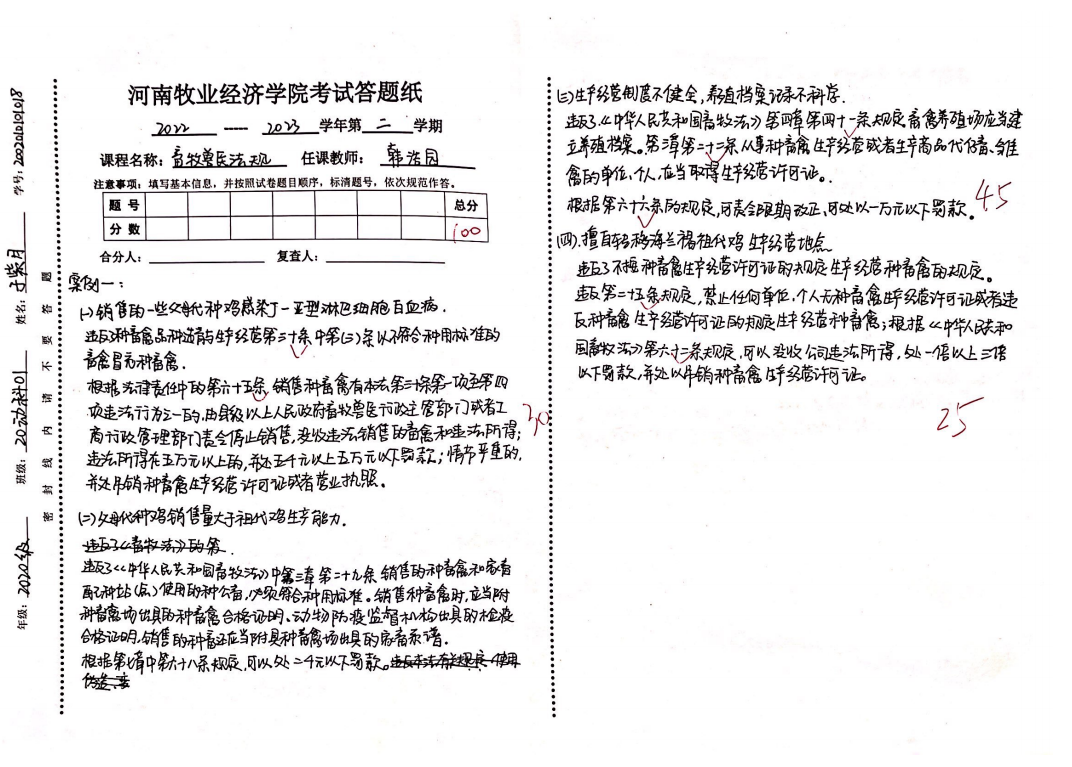 河南牧业经济学院考试答题纸
2022 ---- 2023 学年第 二 学期
课程名称：畜牧兽医法规 任课教师：韩浩园
注意事项：填写基本信息，并按照试卷题目顺序，标清题号，依次规范作答。
题 号 总分
分 数 100
合分人： 复查人：
案例一：
(一)销售的一些父母代种鸡感染了一亚型淋巴细胞白血病.
违反种畜禽品种选育与生产经营第三十条中第(二)条以不符合种用标准的
畜禽冒充种畜禽.
根据法律责任中的第六十五条,销售种畜禽有本法第三十条第一项至第四
项违法行为之一的,由县级以上人民政府畜牧兽医行政主管部门或者工
商行政管理部门责令停止销售,没收违法销售的畜禽和违法所得;
违法所得在五万元以上的,并处五千元以上五万元以下罚款;情节严重的,
并处吊销种畜禽生产经营许可证或者营业执照.
30
(二)父母代种鸡销售量大于祖代鸡生产能力.
违反了《畜牧法》的第
违反了《中华人民共和国畜牧法》中第三章第二十九条 销售的种畜禽和家畜
配种站(点)使用的种公畜,必须符合种用标准。销售种畜禽时,应当附
种畜禽场出具的种畜禽合格证明、动物防疫监督机构出具的检疫
合格证明,销售的种畜还应当附具种畜禽场出具的家畜系谱.
根据第七章中第六十八条规定,可以处二千元以下罚款。
(三)生产经营制度不健全,养殖档案记录不科学.
违反了《中华人民共和国畜牧法》第四章第四十一条规定畜禽养殖场应当建
立养殖档案。第三章第二十二条从事种畜禽生产经营或者生产商品代仔畜、雏
禽的单位、个人,应当取得生产经营许可证。
根据第六十六条的规定,可责令限期改正,可处以一万元以下罚款。
45
(四).擅自转移海兰褐祖代鸡生产经营地点
违反了不按种畜禽生产经营许可证的规定生产经营种畜禽的规定。
违反第二十五条规定,禁止任何单位、个人无种畜禽生产经营许可证或者违
反种畜禽生产经营许可证的规定生产经营种畜禽;根据《中华人民共和
国畜牧法》第六十二条规定,可以没收公司违法所得,处一倍以上三倍
以下罚款,并处以吊销种畜禽生产经营许可证。
25
学号：202010101018
姓名：
班级：20动科01
年级：2020级
密 封 线 内 请 不 要 答 题